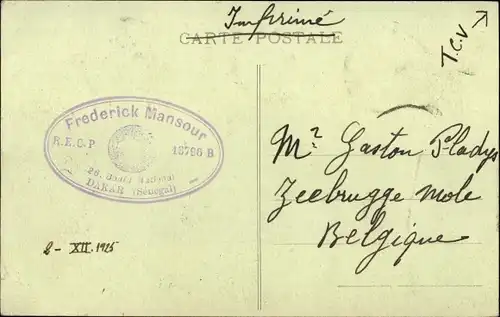 Imprimé
CARTE POSTALE
T.C.V
Frederick Mansour
R.E.C.P 18796 B
DAKAR (Sénégal)
Mr Gaston Pladys
Zeebrugge mole
Belgique
2- XII. 1925